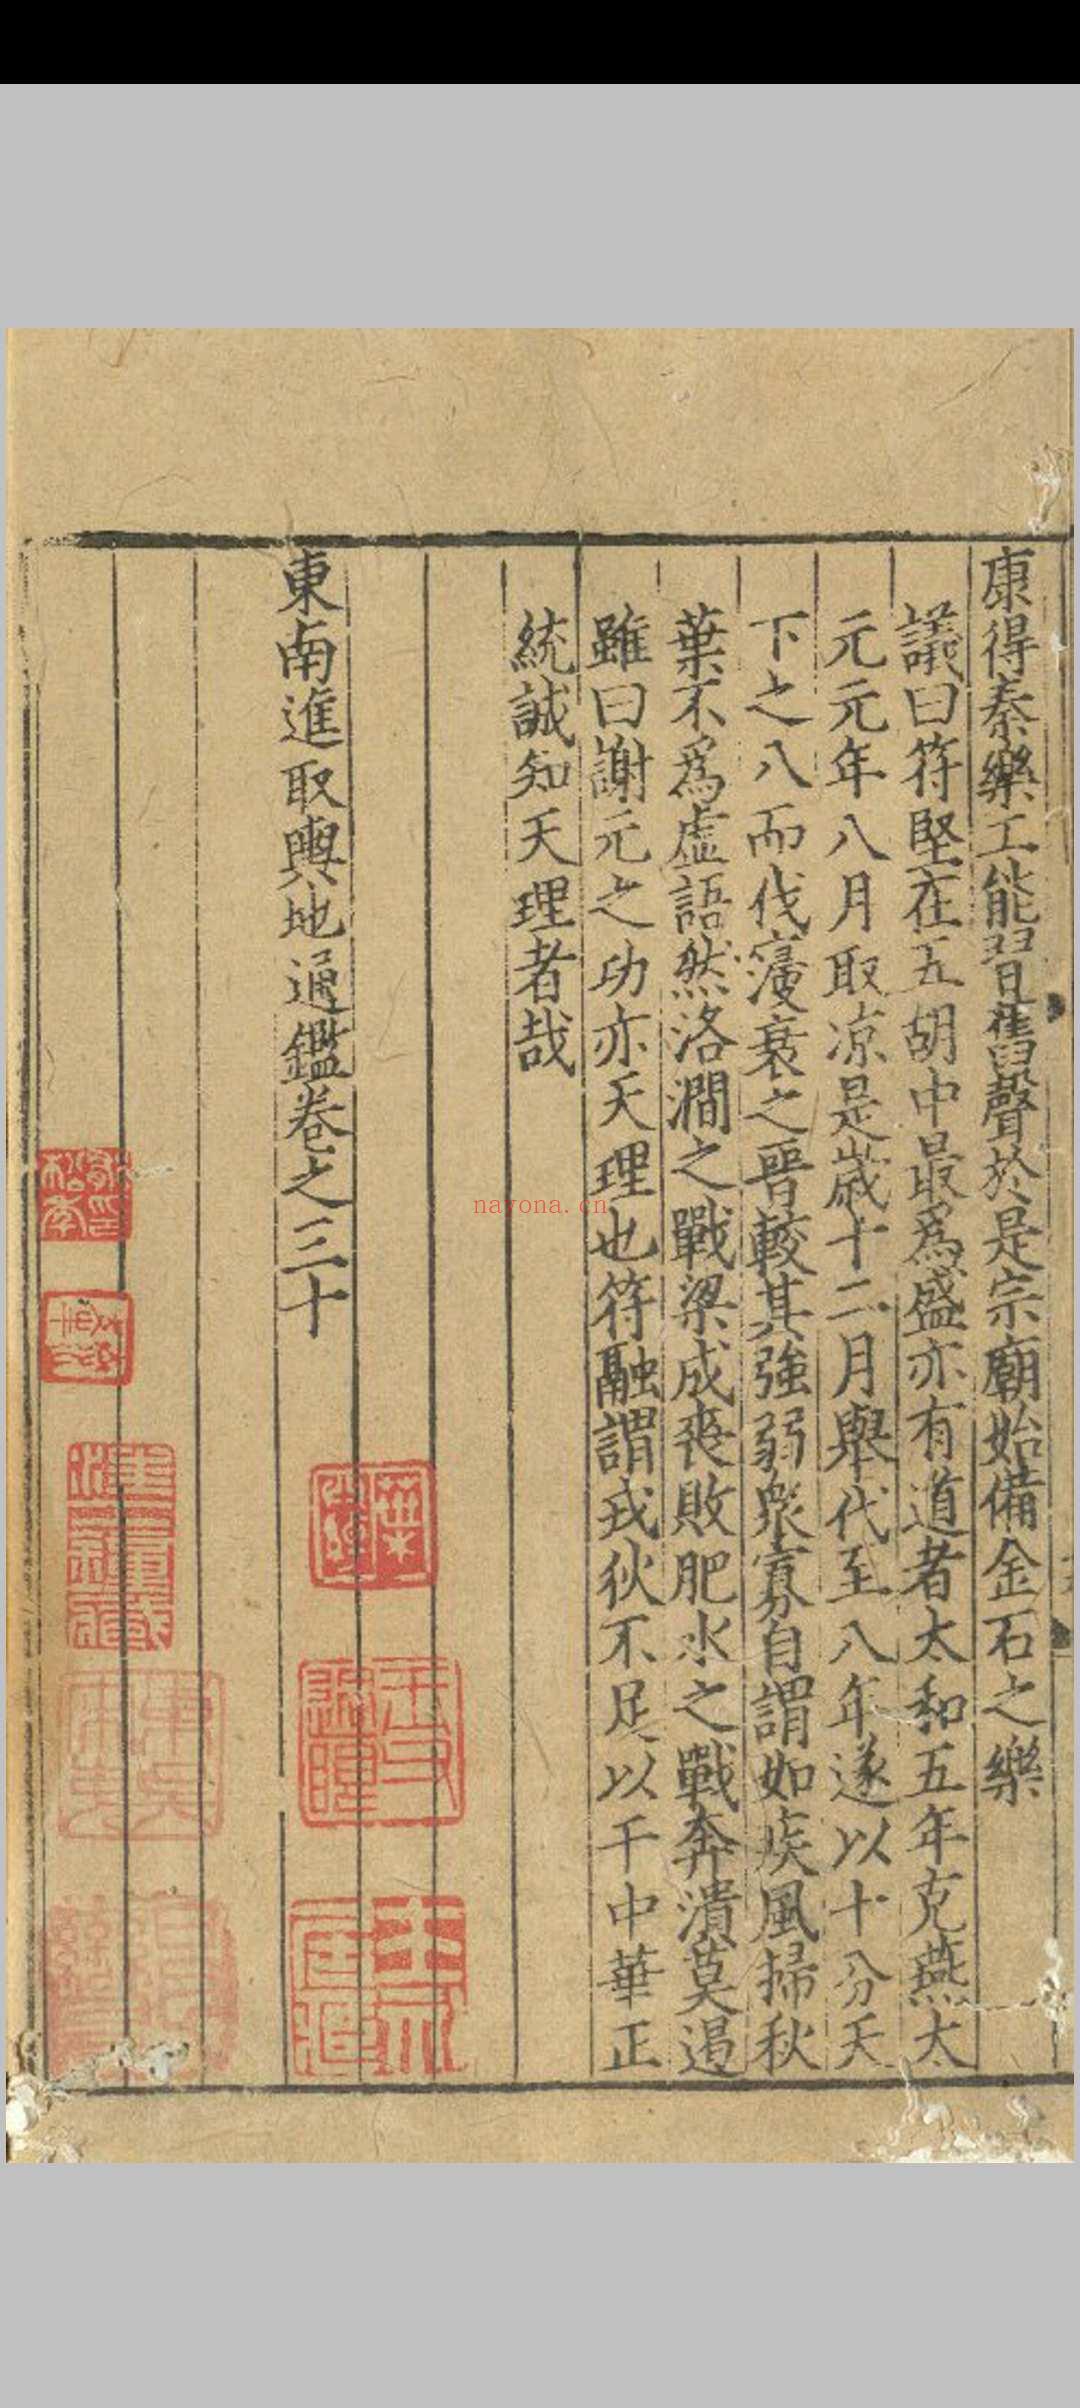 康得秦樂工能習舊聲於是宗廟始備金石之樂
議曰符堅在五胡中最爲盛亦有道者太和五年克燕太
元元年八月取凉是歲十二月舉代至八年遂以十分天
下之八而伐寖衰之晉較其強弱衆寡自謂如疾風掃秋
葉不爲虛語然洛澗之戰梁成喪敗肥水之戰奔潰莫遏
雖曰謝元之功亦天理也符融謂戎狄不足以干中華正
統誠知天理者哉
東南進取輿地通鑑卷之三十
nayona.cn